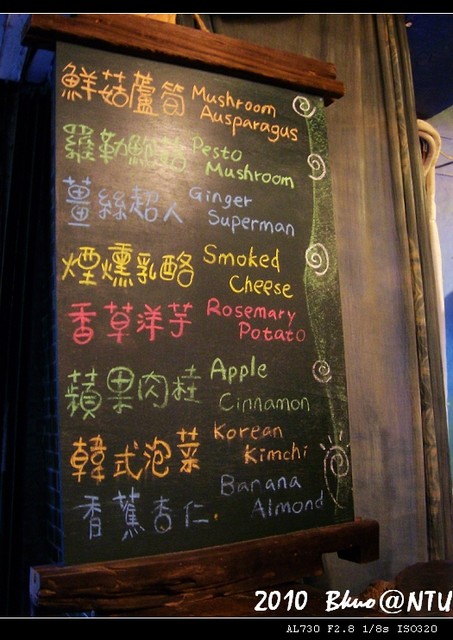 鮮菇蘆筍 Mushroom
Ausparagus
羅勒鮑菇 Pesto
Mushroom
薑絲超人 Ginger
Superman
煙燻乳酪 Smoked
Cheese
香草洋芋 Rosemary
Potato
蘋果肉桂 Apple
Cinnamon
韓式泡菜 Korean
Kimchi
香蕉杏仁 Banana
Almond
2010 Bkuo@NTU
AL730 F2.8 1/8s ISO320